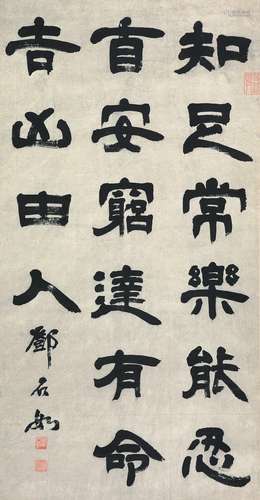 知足常樂能忍
自安窮達有命
吉凶由人
鄧石如